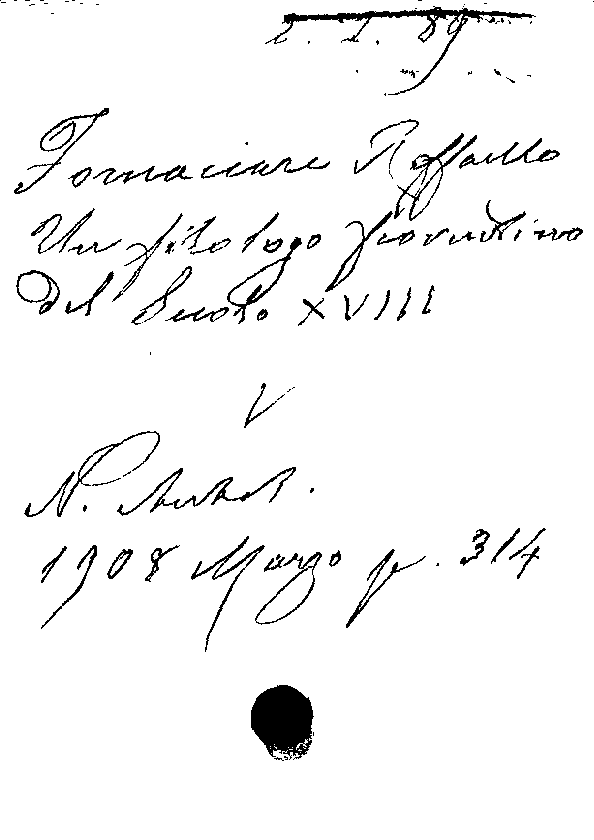 2. I. 89
Fornaciari Raffaello
Un filologo fiorentino
del Secolo XVIII
V
N. Antol.
1908 Marzo p. 314